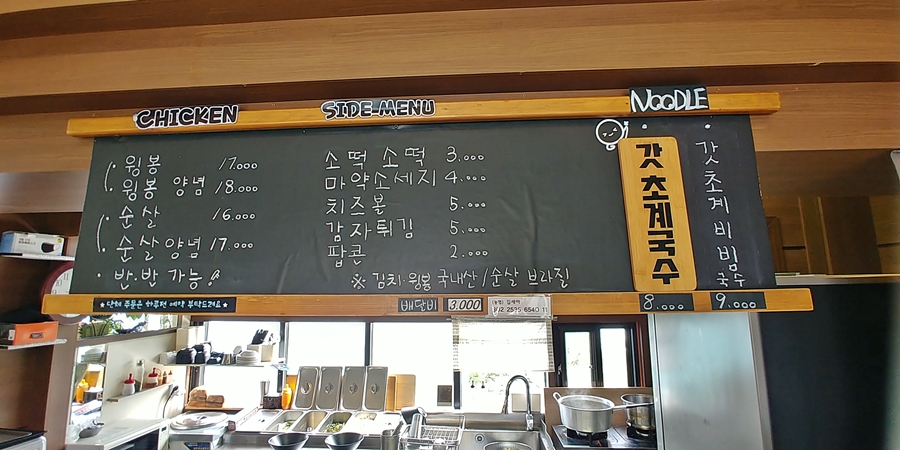 CHICKEN
윙봉 17.000
윙봉 양념 18.000
순살 16.000
순살양념 17.000
반·반 가능!
SIDE-MENU
소떡소떡 3.000
마약소세지 4.000
치즈볼 5.000
감자튀김 5.000
팝콘 2.000
※ 김치·윙봉 국내산 / 순살 브라질
NOODLE
갓초계국수
8.000
갓초계비빔국수
9.000
★단체 주문은 하루전 예약 부탁드려요★
배달비 3000